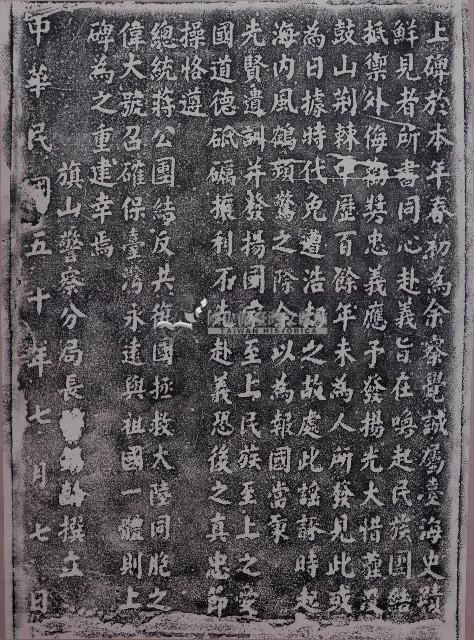 上碑於本年春初為余察覺誠屬臺海史蹟
鮮見者所書同心赴義旨在喚起民族團結
抵禦外侮為獎忠義應予發揚光大惜薶沒
鼓山荆棘中歷百餘年未為人所發見此或
為日據時代免遭浩劫之故處此謠諑時起
海内風鶴頻驚之際余以為報國當秉
先賢遺訓并發揚國家至上民族至上之愛
國道德砥礪攘利不先赴義恐後之真忠節
操恪遵
總統蔣公團結反共復國拯救大陸同胞之
偉大號召確保臺灣永遠與祖國一體則上
碑為之重建幸焉
旗山警察分局長 撰立
中華民國五十年七月七日
TAIWAN HISTORICA